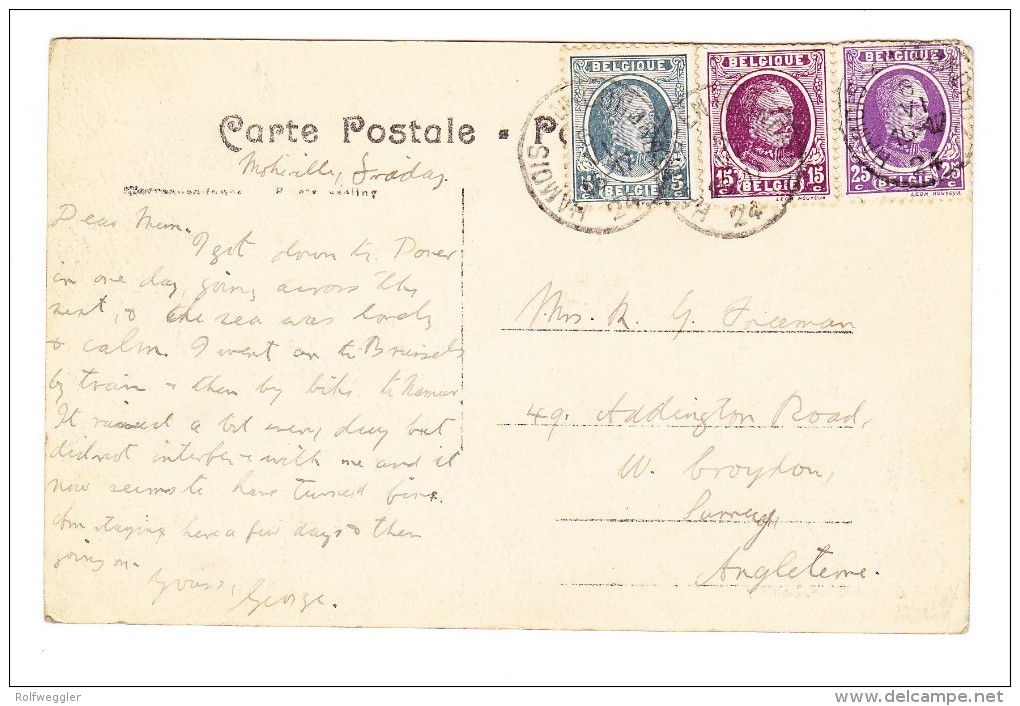 Carte Postale = Po
BELGIQUE
5 5
BELGIË
BELGIQUE
15 15
BELGIË
BELGIQUE
25 25
BELGIË
HAMOIS
24
HAMOIS
24
Mohiville, Friday
Dear Mum.
I got down to Dover
in one day, going across the
next, & the sea was lovely
& calm. I went on to Brussels
by train & then by bike to Namur
It rained a bit every day but
did not interfere with me and it
now seems to have turned fine.
Am staying here a few days & then
going on.
Yours,
George.
Mrs. R. G. Freeman
49. Addington Road,
W. Croydon,
Surrey,
Angleterre.
Rolfweggler
www.delcampe.net